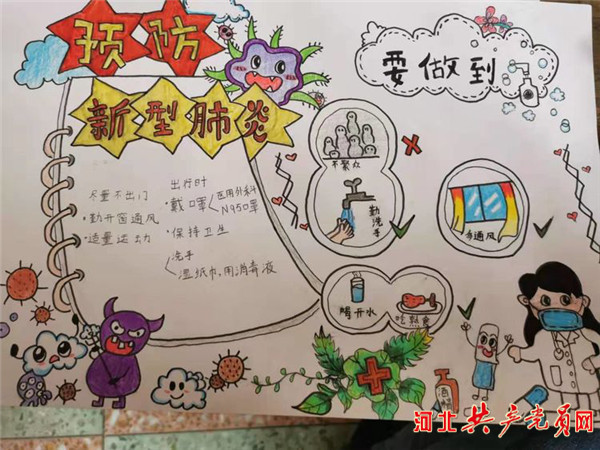 预防
新型肺炎
要做到
尽量不出门
·勤开窗通风
·适量运动
出行时
·戴口罩
医用外科
N95口罩
·保持卫生
洗手
湿纸巾,用消毒液
不聚众
勤洗手
多通风
喝开水
吃熟食
酒精
河北共产党员网